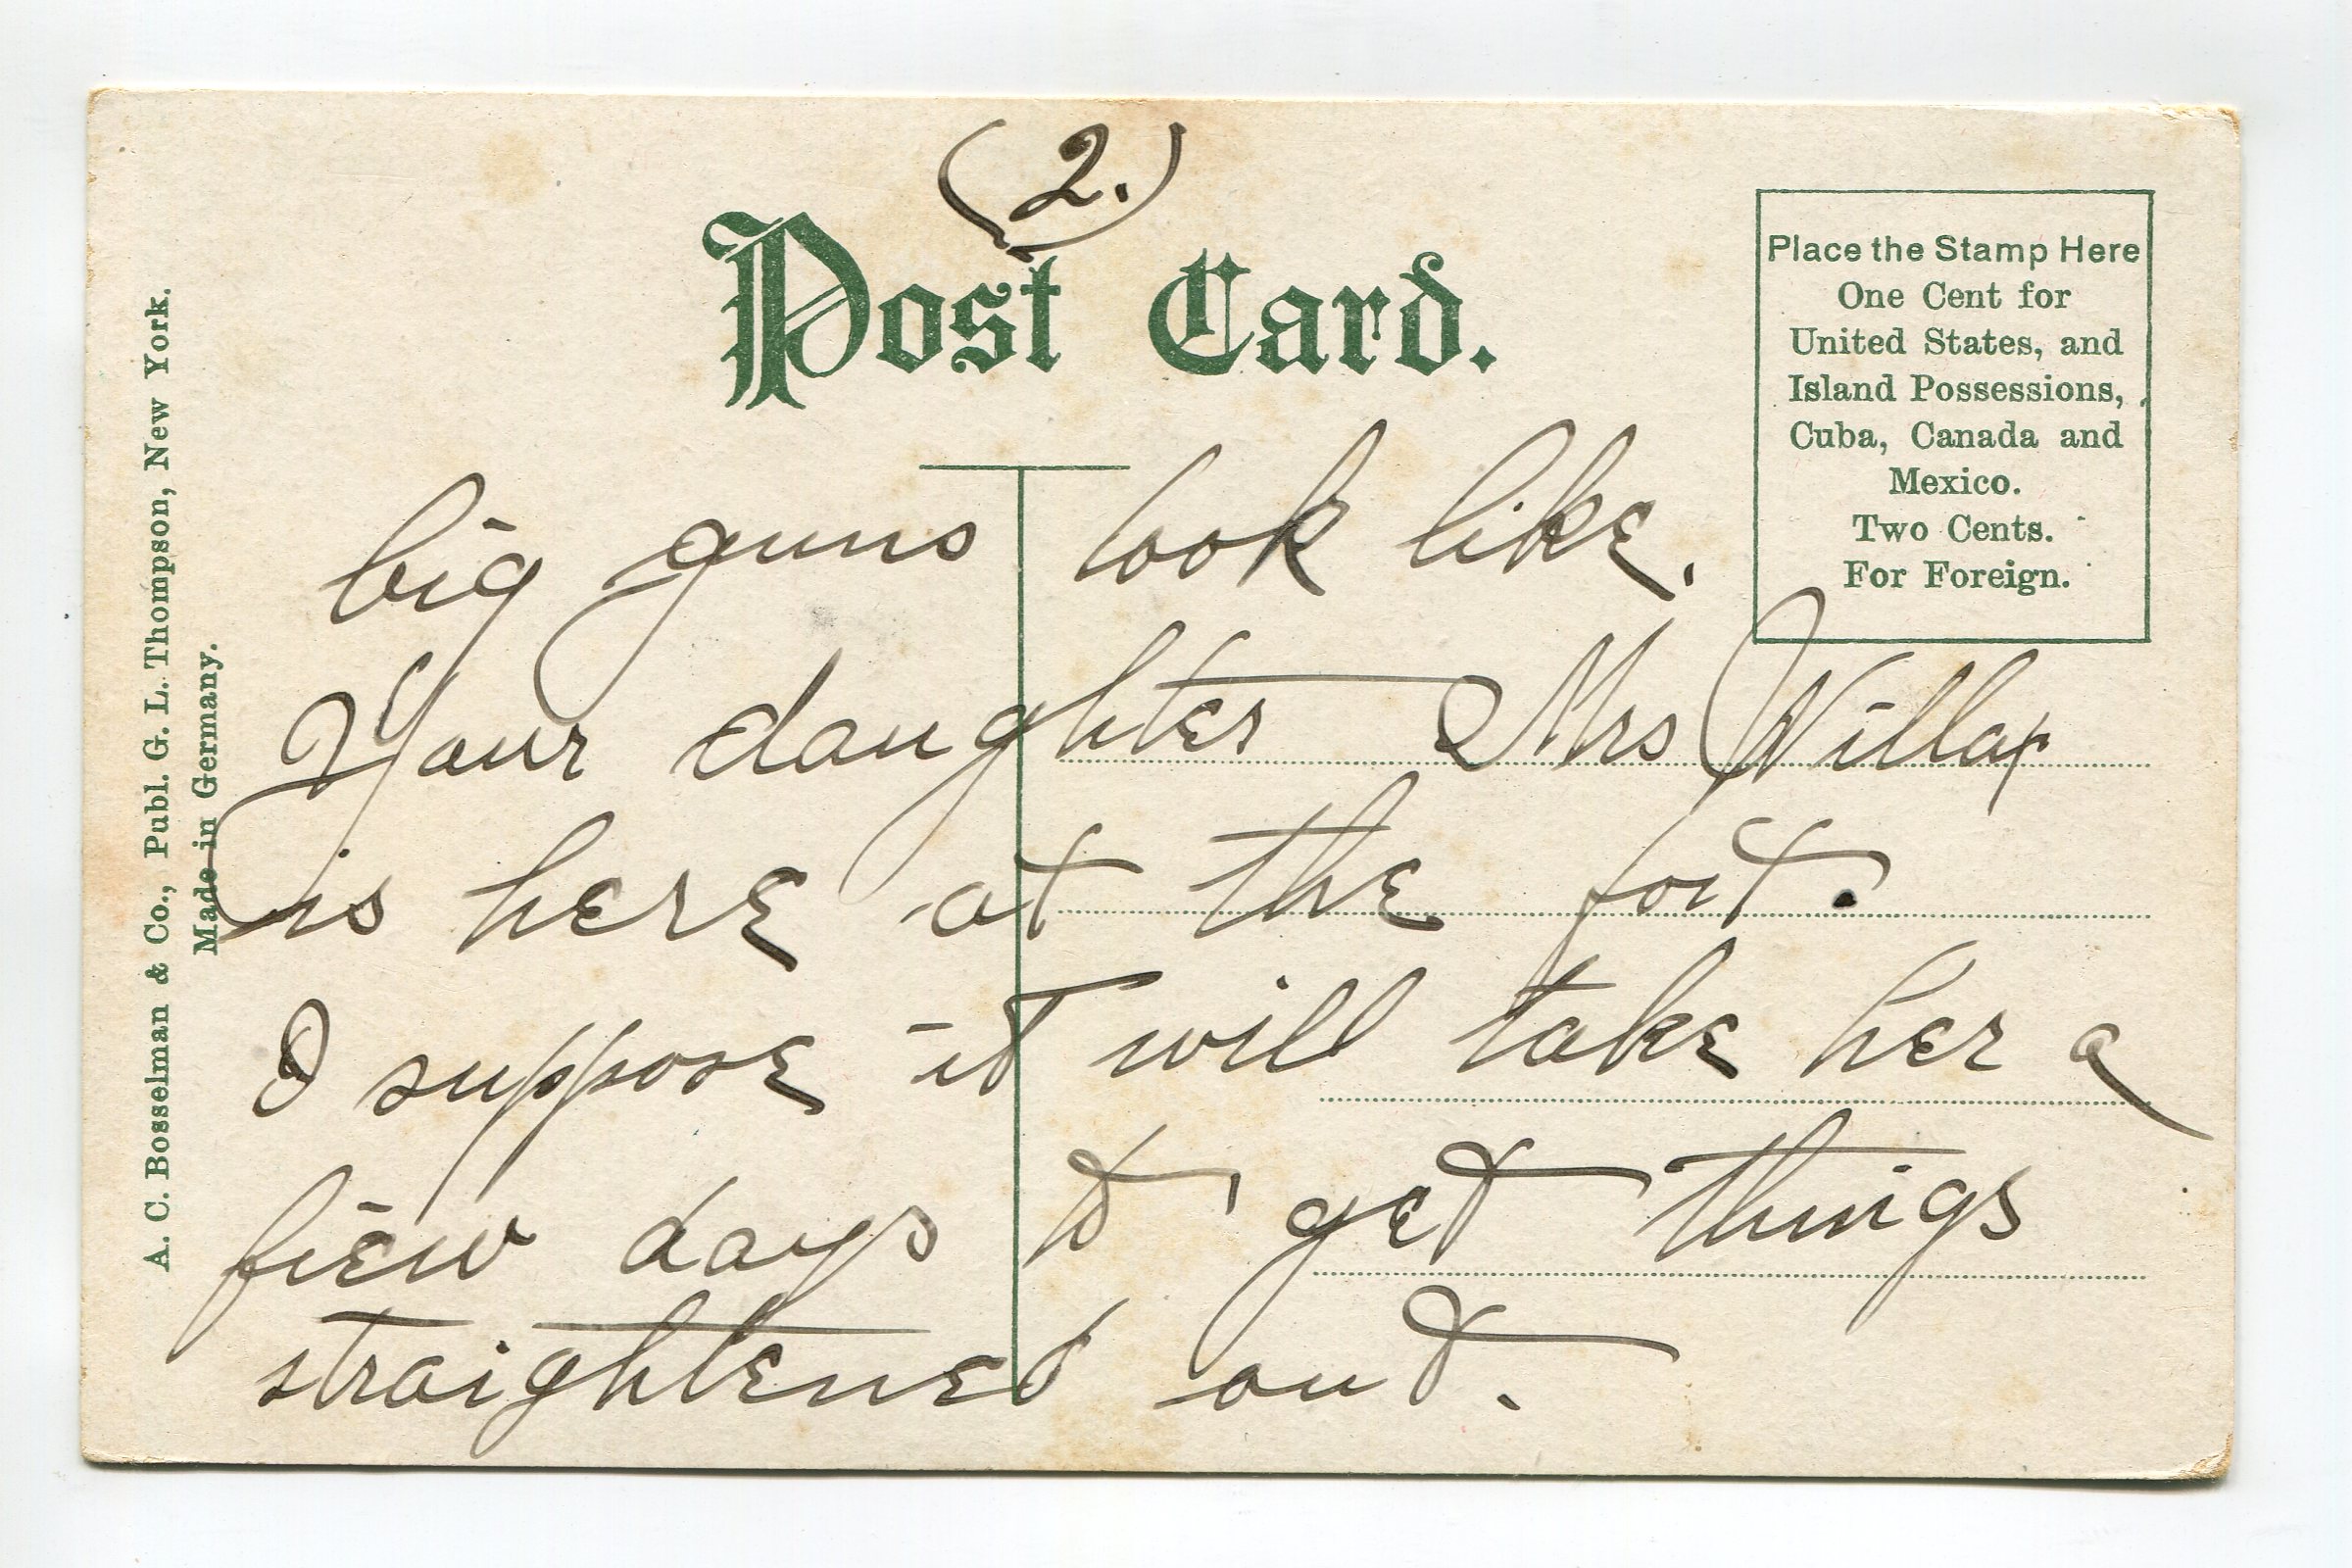 (2.)
Post Card.
Place the Stamp Here
One Cent for
United States, and
Island Possessions,
Cuba, Canada and
Mexico.
Two Cents.
For Foreign.
A. C. Bosselman & Co., Publ. G. L. Thompson, New York.
Made in Germany.
big guns look like.
Your daughter Mrs Willax
is here at the fort.
I suppose it will take her a
few days to get things
straightened out.